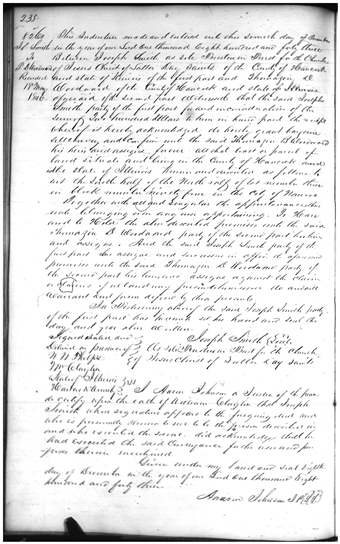 235
8269 This Indenture made and entered into this seventh day of December
Jos Smith in the year of our Lord One thousand Eight hundred and forty three
To Between Joseph Smith as Sole Trustee in Trust for the Church
of Jesus Christ of Latter Day Saints of the County of Hancock
Recorded and State of Illinois of the first part and
18th May Woodward of the County of Hancock and State of Illinois
aforesaid of the second part Witnesseth that the said Joseph
Smith party of the first part for and in consideration of the
Sum of Hundred Dollars to him in hand paid the receipt
whereof is hereby acknowledged do hereby grant bargain
and Confirm unto the said Woodward
his heirs and assigns forever all that tract or parcel of
land situate and being in the County of Hancock and
State of Illinois known and described as follows to
wit the South half of the North half of lot number three
in Block number in the City of Nauvoo
Together with all and Singular the appurtenances there
unto belonging or in any wise appertaining To Have
and to Hold the above described premises unto the said
Woodward party of the second part his heirs
and assigns And the said Joseph Smith party of the
first part doth assign and successors in office the aforesaid
premises unto the said Woodward party of
the second part his heirs and assigns against the claim
or claims of all and every person whomsoever do and will
Warrant and forever defend by these presents
In Testimony whereof the said Joseph Smith party
of the first part has hereunto set his hand and seal the
day and year above written
Signed sealed and Joseph Smith {Seal}
delivered in presence of As sole Trustee in Trust for the Church
W W Phelps of Jesus Christ of Latter Day Saints
Wm Clayton
State of Illinois } SS
Hancock County } I Aaron Johnson a Justice of the peace
do certify upon the oath of William Clayton that Joseph
Smith whose signature appears to the foregoing deed and
who is personally known to me to be the person described in
and who executed the same did acknowledge that he
had executed the said Conveyance for the uses and pur
poses therein mentioned
Given under my hand and seal Eighth
day of December in the year of our Lord One thousand Eight
hundred and forty three
Aaron Johnson J.P. {LS}